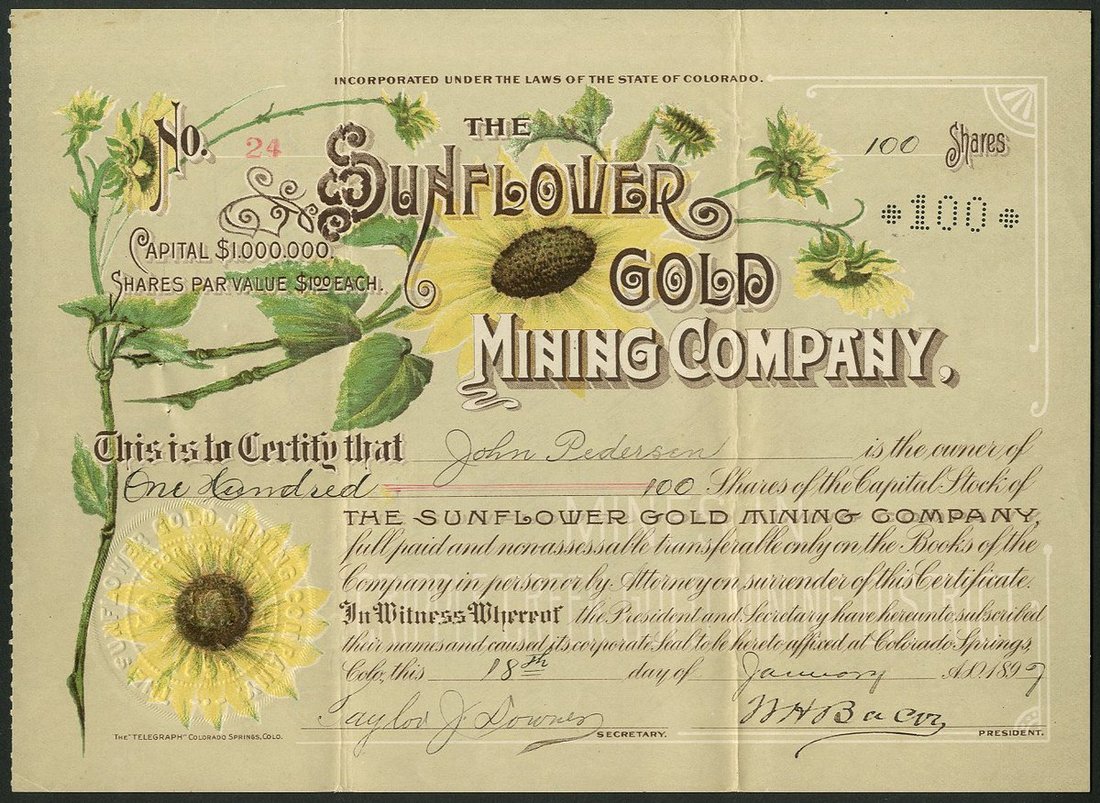 INCORPORATED UNDER THE LAWS OF THE STATE OF COLORADO.
No. 24
THE
SUNFLOWER
GOLD
MINING COMPANY,
100 Shares
*100*
CAPITAL $1.000.000.
SHARES PAR VALUE $1.00 EACH.
This is to Certify that John Pedersen is the owner of
One Hundred 100 Shares of the Capital Stock of
THE SUNFLOWER GOLD MINING COMPANY,
full paid and nonassessable transferable only on the Books of the
Company in person or by Attorney on surrender of this Certificate.
In Witness Whereof the President and Secretary have hereunto subscribed
their names and caused its corporate Seal to be hereto affixed at Colorado Springs,
Colo, this 18th day of January A.D. 1897
Taylor J. Downer SECRETARY.
W H Bacon PRESIDENT.
THE "TELEGRAPH" COLORADO SPRINGS, COLO.
MINES IN
SUNFLOWER GOLD MINING COMPANY